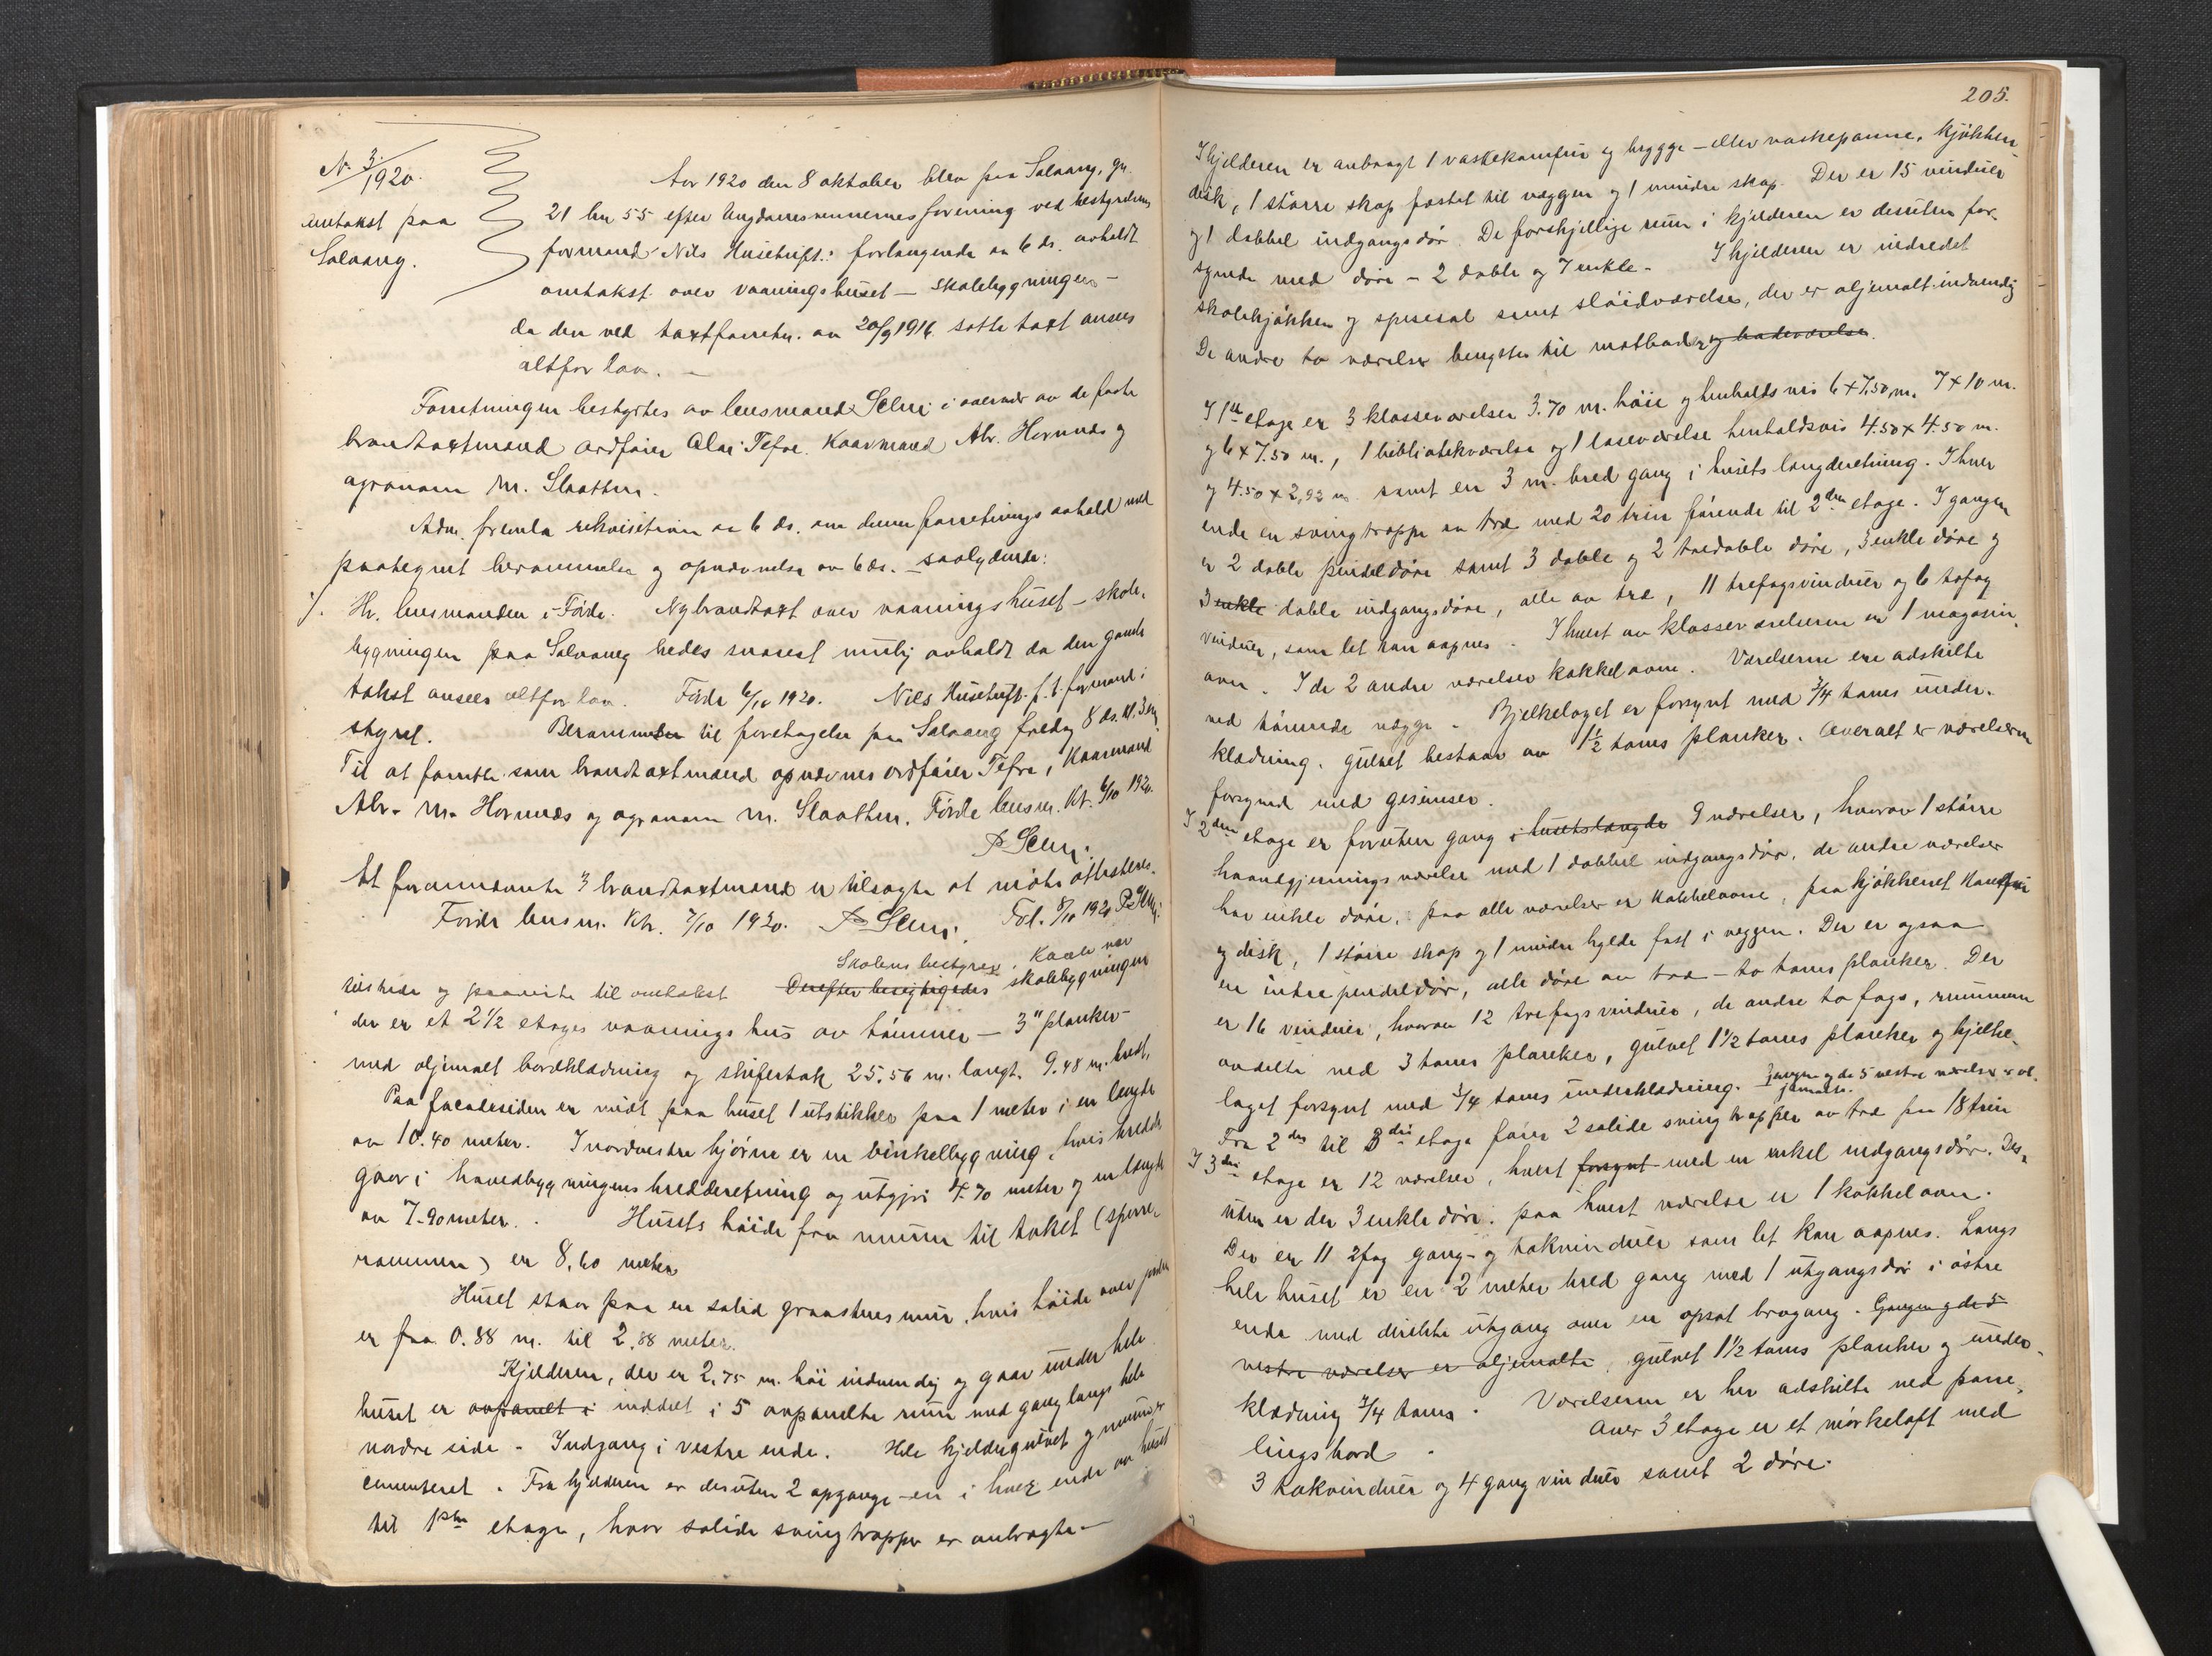 No 3/1920.
omtakst paa
Solvang.
Aar 1920 den 8 oktober blev paa Solvang, gn.
21 bn 55 efter Ungdomsvennernes forening ved bestyrelsens
formand Nils Husetuft.: forlangende av 6 ds. avholdt
omtakst over vaaningshuset – skolebygningen –
da den ved taxtforretn. av 20/9 1916 satte taxt ansees
altfor lav. –
Forretningen bestyrtes av lensmand Selni i overvær av de faste
brandtaxtmænd ordfører Olai Tefre. Kaarmand Abr. Hornnæs og
agronom M. Slaatten.
Adm. fremla rekvisition av 6 ds. om denne forretnings avhold med
paategnet berammelse og opnævnelse av 6 ds. – saalydende:
Hr. lensmanden i Førde. Ny brandtaxt over vaaningshuset – skole-
bygningen paa Solvang bedes snarest mulig avholdt da den gamle
takst ansees altfor lav. Førde 6/10 1920. Nils Husetuft f. t. formand i
styret. Berammes til foretagelse paa Solvang fredag 8 ds. kl. 3 em.
Til at møte som brandtaxtmænd opnævnes ordfører Tefre, Kaarmand
Abr. M. Hornnæs og agronom M. Slaatten. Førde lensm. Kt. 6/10 1920.
P. Selni.
At forannævnte 3 brandtaxtmænd er tilsagte at møte attesteres.
Førde lensm. Ktr. 7/10 1920. P. Selni. Fol. 8/10 1920 P. Selni
Skolens bestyrer, Kaale var
tilstede og paaviste til omtakst Derefter besigtigedes skolebygningen
der er et 2 1/2 etages vaaningshus av tømmer – 3" planker –
med oljemalt bordklædning og skifertak 25.56 m. langt. 9.48 m. bredt.
Paa facadesiden er midt paa huset 1 utstikker paa 1 meter i en længde
av 10.40 meter. I nordvestre hjørne er en vinkelbygning, hvis bredde
gaar i hovedbygningens bredderetning og utgjør 4.70 meter og en længde
av 7.90 meter. Husets høide fra muren til taket (sperre-
rammen) er 8.60 meter
Huset staar paa en solid graastensmur, hvis høide over jorden
er fra 0.88 m. til 2.88 meter.
Kjelderen, der er 2,75 m. høi indvendig og gaar under hele
huset er avpanelt i inddelt i 5 avpanelte rum med gang langs hele
nordre side. Indgang i vestre ende. Hele kjeldergulvet og muren er
cementeret. Fra kjelderen er desuten 2 opgange – en i hver ende av huset
til 1ste etage, hvor solide svingtrapper er anbragte. –
205.
I kjelderen er anbragt 1 vaskekomfur og brygge – eller vaskepanne, kjøkken-
disk, 1 større skap fæstet til væggen og 1 mindre skap. Der er 15 vinduer
og 1 dobbel indgangsdør. De forskjellige rum i kjelderen er desuten for-
synede med døre – 2 doble og 7 enkle. I kjelderen er indredet
skolekjøkken og spisesal samt sløidværelse, der er oljemalt indvendig
De andre to værelser benyttes til matboder og badeværelse.
I 1ste etage er 3 klasseværelser 3.70 m. høie og henholdsvis 6 x 7,50 m. 7 x 10 m.
og 6 x 7.50 m., 1 bibliotekværelse og 1 læseværelse henholdsvis 4.50 x 4.50 m.
og 4.50 x 2,92 m. samt en 3 m. bred gang i husets længderetning. I hver
ende en svingtrappe av træ med 20 trin førende til 2den etage. I gangen
er 2 doble pendeldøre samt 3 doble og 2 tredoble døre, 3 enkle døre og
3 enkle doble indgangsdøre, alle av træ, 11 trefagsvinduer og 6 tofag
vinduer, som let kan aapnes. I hvert av klasseværelserne er 1 magasin-
ovn. I de 2 andre værelser kakkelovne. Værelserne ere adskilte
ved tømrede vægge. Bjelkelaget er forsynt med 3/4 toms under-
klædning. Gulvet bestaar av 1 1/2 toms planker. Overalt er værelserne
forsyned med gesimser.
I 2den etage er foruten gang i husets længde 9 værelser, hvorav 1 større
haandgjerningsværelse med 1 dobbel indgangsdør, de andre værelser
har enkle døre, paa alle værelser er kakkelovne, paa kjøkkenet komfur
og disk, 1 større skap og 1 mindre hylde fast i væggen. Der er ogsaa
en indre pendeldør, alle døre av træ – to toms planker. Der
er 16 vinduer, hvorav 12 trefagsvinduer, de andre to fags, rummene
avdelte ved 3 toms planker, gulvet 1 1/2 toms planker og bjelke-
laget forsynt med 3/4 toms underklædning. Gangen og de 5 vestre værelser er ol-
jemalte.
Fra 2den til 3die etage fører 2 solide svingtrapper av træ paa 18 trin
I 3die etage er 12 værelser, hvert forsynt med en enkel indgangsdør. Des-
uten er der 3 enkle døre. paa hvert værelse er 1 kakkelovn.
Der er 11 2fag gang- og takvinduer som let kan aapnes. Langs
hele huset er en 2 meter bred gang med 1 utgangsdør i østre
ende med direkte utgang over en opsat brogang. Gangen og de 5
vestre værelser er oljemalte, gulvet 1 1/2 toms planker og under-
klædning 3/4 toms. Værelserne er her adskilte ved pane-
lingsbord. Over 3 etage er et mørkeloft med
3 takvinduer og 4 gangvinduer samt 2 døre.